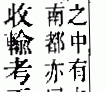 之中有
南都亦
收輸考